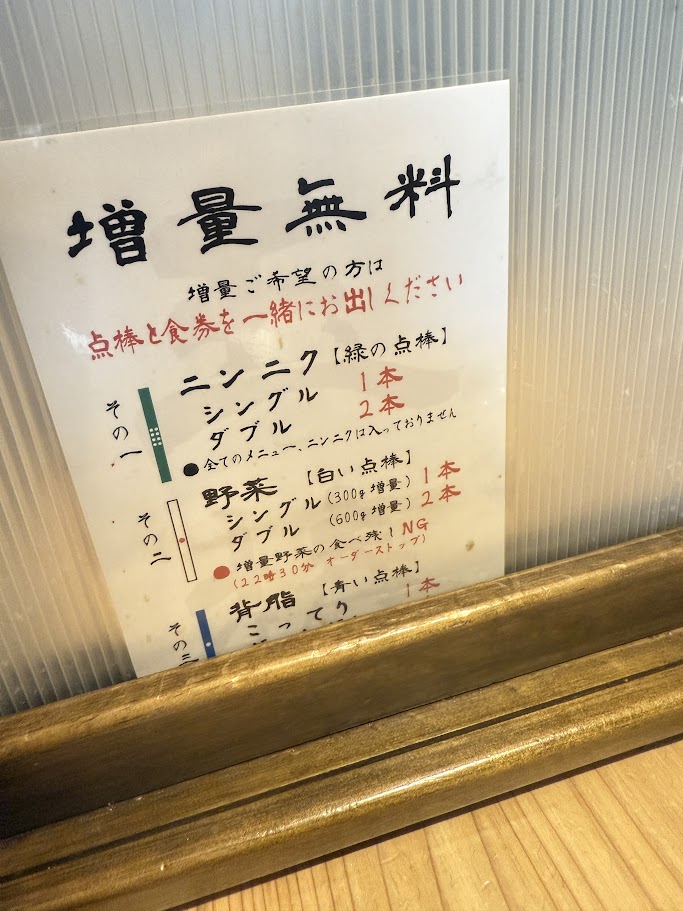 増量無料
増量ご希望の方は
点棒と食券を一緒にお出しください
その一
ニンニク【緑の点棒】
シングル 1本
ダブル 2本
●全てのメニューへ、ニンニクは入っておりません
その二
野菜【白い点棒】
シングル(300g増量) 1本
ダブル(600g増量) 2本
●増量野菜の食べ残しNG
(22時30分 オーダーストップ)
その三
背脂【青い点棒】
こってり 1本